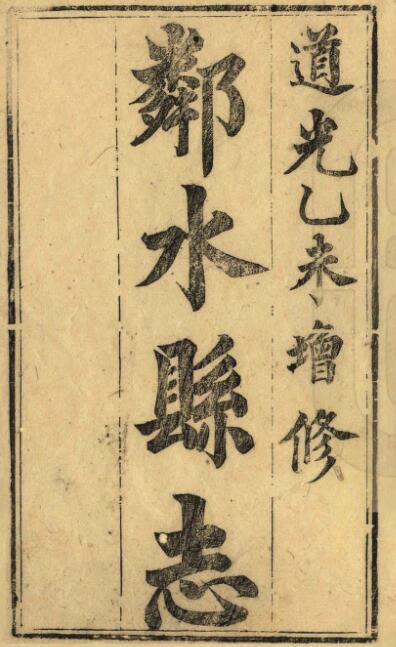 道光乙未增修
鄰水縣志